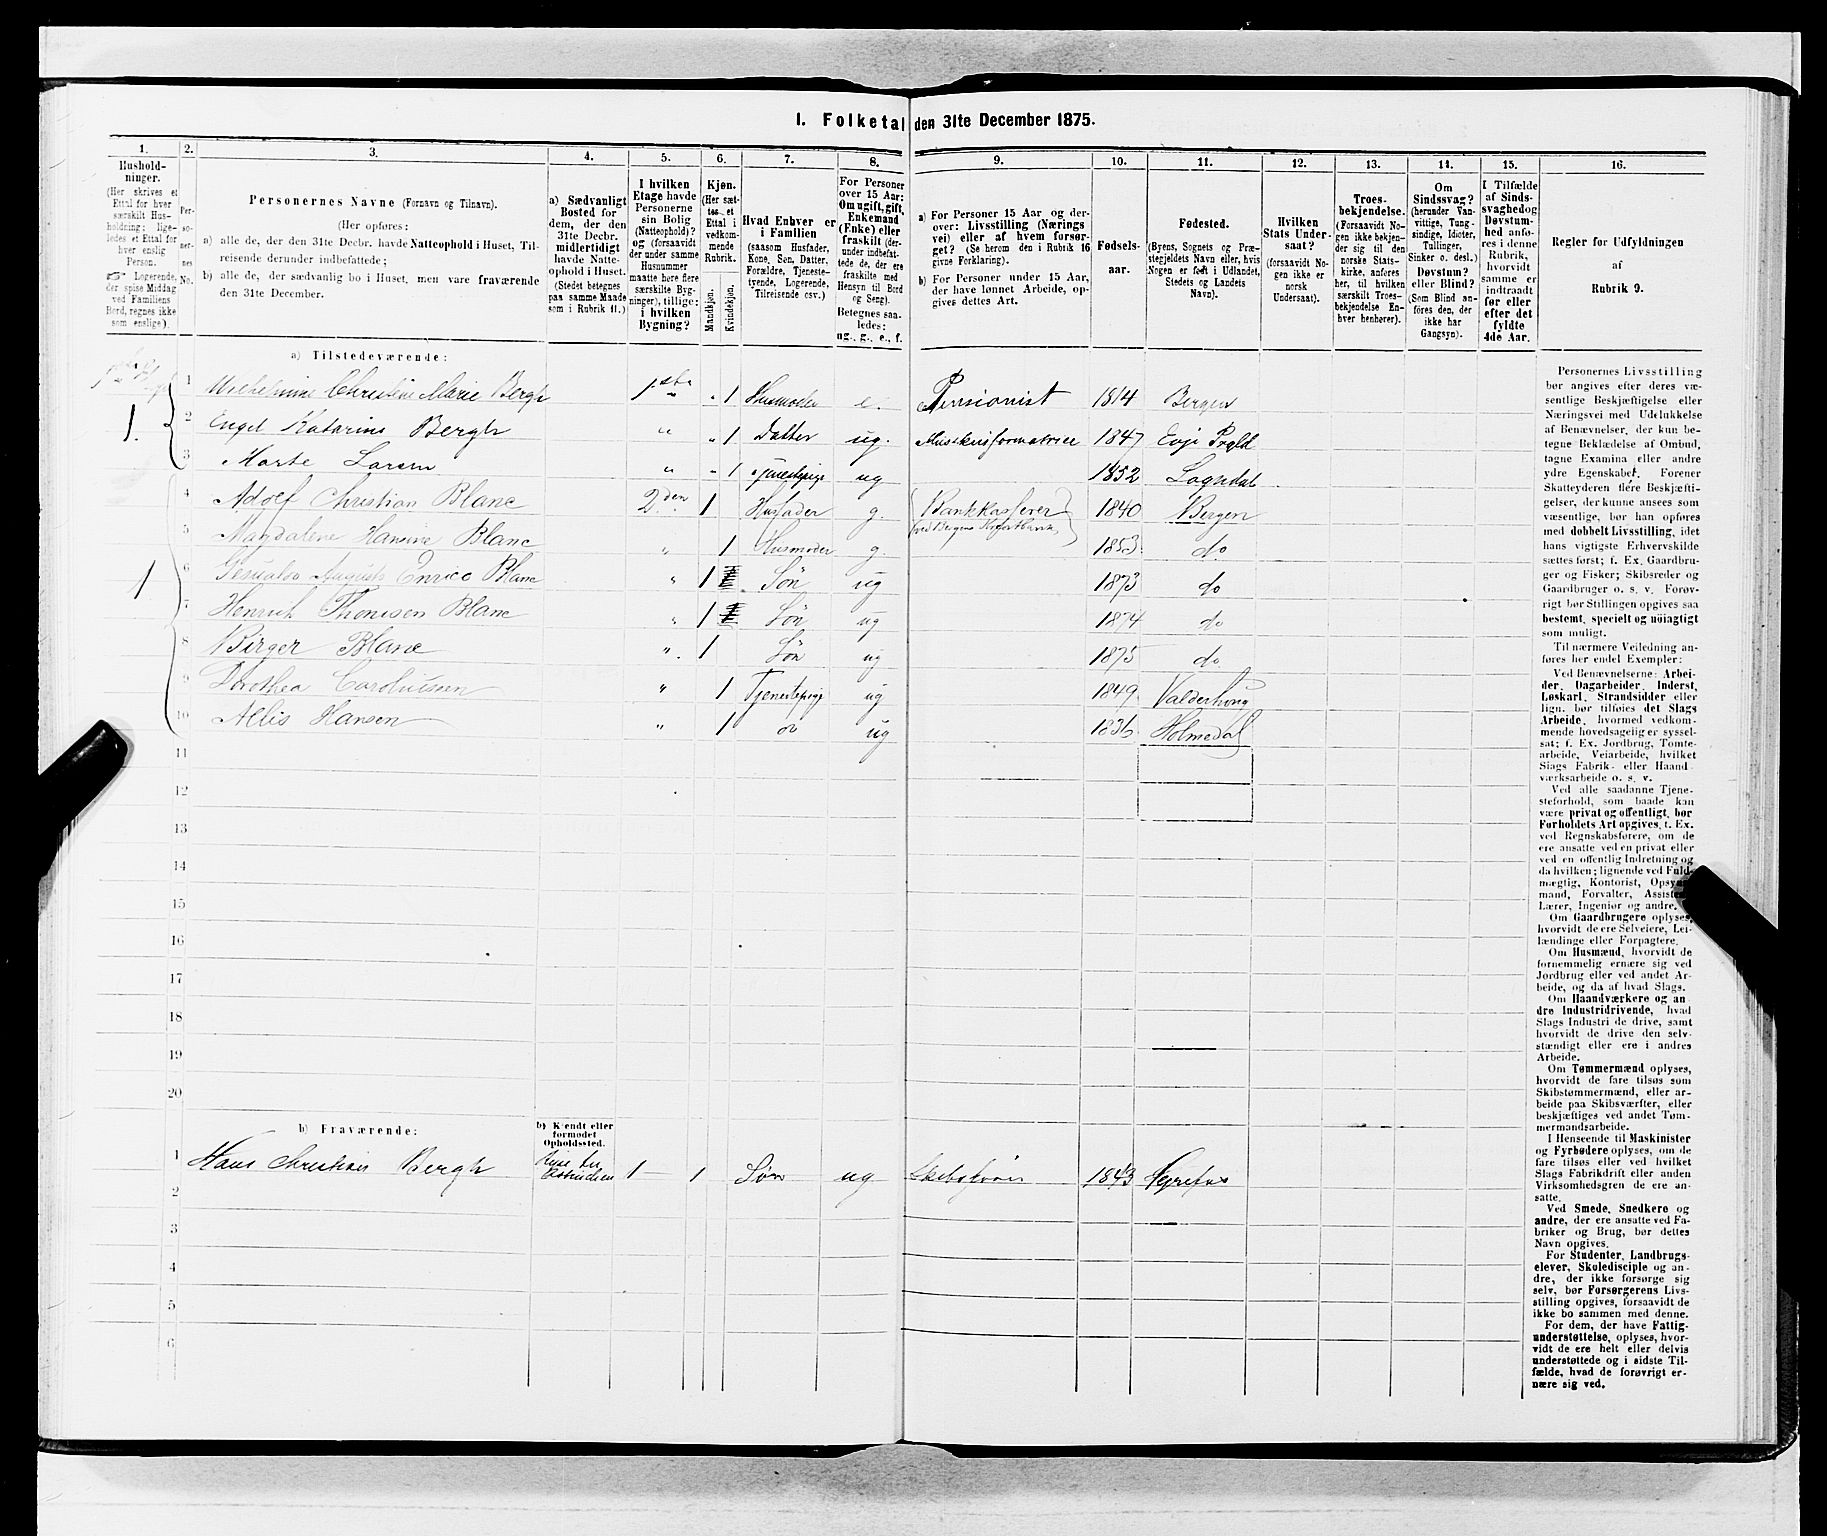 I. Folketal den 31te December 1875.
1.
Husholdninger.
(Her skrives et
Ettal for hver
særskilt Husholdning; ligeledes et Ettal for
hver enslig
Person.
☞ Logerende,
der spise Middag
ved Familiens
Bord, regnes ikke
som enslige).
2.
Personernes
No.
3.
Personernes Navne (Fornavn og Tilnavn).
(Her opføres:
a) alle de, der den 31te Decbr. havde Natteophold i Huset, Tilreisende derunder indbefattede;
b) alle de, der sædvanlig bo i Huset, men vare fraværende
den 31te December.
4.
a) Sædvanligt
Bosted for
dem, der den
31te Decbr.
midlertidigt
havde Natteophold i Huset.
(Stedet betegnes
paa samme Maade
som i Rubrik 11.)
5.
I hvilken
Etage havde
Personerne
sin Bolig
(Natteophold)?
og (forsaavidt
der under samme
Husnummer
maatte høre flere
særskilte Bygninger), tillige:
i hvilken
Bygning?
6.
Kjøn.
(Her sættes et
Ettal i
vedkommende
Rubrik.
Mandkjøn.
Kvindekjøn.
7.
Hvad Enhver er
i Familien
(saasom Husfader,
Kone, Søn, Datter,
Forældre, Tjenestetyende, Logerende,
Tilreisende osv.)
8.
For Personer
over 15 Aar:
Om ugift, gift,
Enkemand
(Enke) eller
fraskilt (derunder indbefattede de, der ere
fraskilte med
Hensyn til Bord
og Seng).
Betegnes saaledes:
ug., g., e., f.
9.
a) For Personer 15 Aar og derover: Livsstilling (Næringsvei) eller af hvem forsørget? (Se herom den i Rubrik 16
givne Forklaring).
b) For Personer under 15 Aar,
der have lønnet Arbeide, opgives dettes Art.
10.
Fødselsaar.
11.
Fødested.
(Byens, Sognets og Præstegjeldets Navn eller, hvis
Nogen er født i Udlandet,
Stedets og Landets
Navn).
12.
Hvilken
Stats Undersaat?
(forsaavidt Nogen ikke er
norsk
Undersaat).
13.
Troesbekjendelse.
(Forsaavidt Nogen ikke bekjender sig til den
norske Statskirke, anføres
her, til hvilken
særskilt Troesbekjendelse Enhver henhører).
14.
Om
Sindssvag?
(herunder Vanvittige, Tungsindige, Idioter,
Tullinger,
Sinker o. desl.)
Døvstum?
eller Blind?
(Som Blind anføres den, der
ikke har
Gangsyn).
15.
I Tilfælde
af Sindssvaghed og
Døvstumhed anføres i denne
Rubrik,
hvorvidt
samme er
indtraadt
før eller
efter det
fyldte
4de Aar.
16.
Regler for Udfyldningen
af
Rubrik 9.
a) Tilstedeværende:
1 Wilhelmine Christine Marie Bergh 1ste 1 Husmoder e. Pensionist 1814 Bergen
1. 2 Engel Katarina Bergh " 1 Datter ug. 1847 Evje
3 Marte Larsen " 1 Tjenestepige ug 1852 Sogndal
4 Adolf Christian Blanc 2den 1 Husfader g. Bankkasserer 1840 Bergen
(ved Bergens
5 Magdalene Hansine Blanc " 1 Husmoder g. 1853 do
1 6 Gesualdo Augusto Enrico Blanc " 1 Søn ug 1873 do
7 Henrik Thomsen Blanc " 1 Søn ug 1874 do
8 Birger Blanc " 1 Søn ug 1875 do
9 Dorothea " 1 Tjenestepige ug 1849 Valderhoug
10 Allis Hansen " 1 do ug 1836 Holmedal
11
12
13
14
15
16
17
18
19
20
b) Fraværende:
b) Kjendt eller
formodet
Opholdssted.
1 Hans Christian Bergh 1 1 Søn ug 1843
2
3
4
5
6
Personernes Livsstilling
bør angives efter deres væsentlige Beskjæftigelse eller
Næringsvei med Udelukkelse
af Benævnelser, der kun betegne Beklædelse af Ombud,
tagne Examina eller andre
ydre Egenskaber. Forener
Skatteyderen flere Beskjæftigelser, der kunne ansees som
væsentlige, bør han opføres
med dobbelt Livsstilling, idet
hans vigtigste Erhvervskilde
sættes først; f. Ex. Gaardbruger og Fisker; Skibsreder og
Gaardbruger o. s. v. Forøvrigt bør Stillingen opgives saa
bestemt, specielt og nöiagtigt
som muligt.
Til nærmere Veiledning anføres her endel Exempler:
Ved Benævnelserne: Arbeider, Dagarbeider, Inderst,
Løskarl, Strandsidder eller
lign. bør tilføies det Slags
Arbeide, hvormed vedkommende hovedsagelig er sysselsat; f. Ex. Jordbrug, Tomtearbeide, Veiarbeide, hvilket
Slags Fabrik- eller Haandværksarbeide o. s. v.
Ved alle saadanne Tjenesteforhold, som baade kan
være privat og offentligt, bør
Forholdets Art opgives, t. Ex.
ved Regnskabsførere, om de
ere ansatte ved en privat eller
ved en offentlig Indretning og
da hvilken; lignende ved Fuldmægtig, Kontorist, Opsynsmand, Forvalter, Assistent,
Lærer, Ingeniør og andre.
Om Gaardbrugere oplyses,
hvorvidt de ere Selveiere, Leilændinge eller Forpagtere.
Om Husmænd, hvorvidt de
fornemmelig ernære sig ved
Jordbrug eller ved andet Arbeide, og da af hvad Slags.
Om Haandværkere og andre Industridrivende, hvad
Slags Industri de drive, samt
hvorvidt de drive den selvstændigt eller ere i andres
Arbeide.
Om Tømmermænd oplyses,
hvorvidt de fare tilsøs som
Skibstømmermænd, eller arbeide paa Skibsværfter, eller
beskjæftiges ved andet Tømmermandsarbeide.
I Henseende til Maskinister
og Fyrbødere oplyses, om de
fare tilsøs eller ved hvilket
Slags Fabrikdrift eller anden
Virksomhedsgren de ere ansatte.
Ved Smede, Snedkere og
andre, der ere ansatte ved Fabriker og Brug, bør dettes
Navn opgives.
For Studenter, Landbrugselever, Skoledisciple og andre, der ikke forsørge sig
selv, bør Forsørgerens Livsstilling opgives, forsaavidt de
ikke bo sammen med denne.
For dem, der have Fattigunderstøttelse, oplyses, hvorvidt de ere helt eller delvis
understøttede og i sidste Tilfælde, hvad de forøvrigt ernære sig ved.